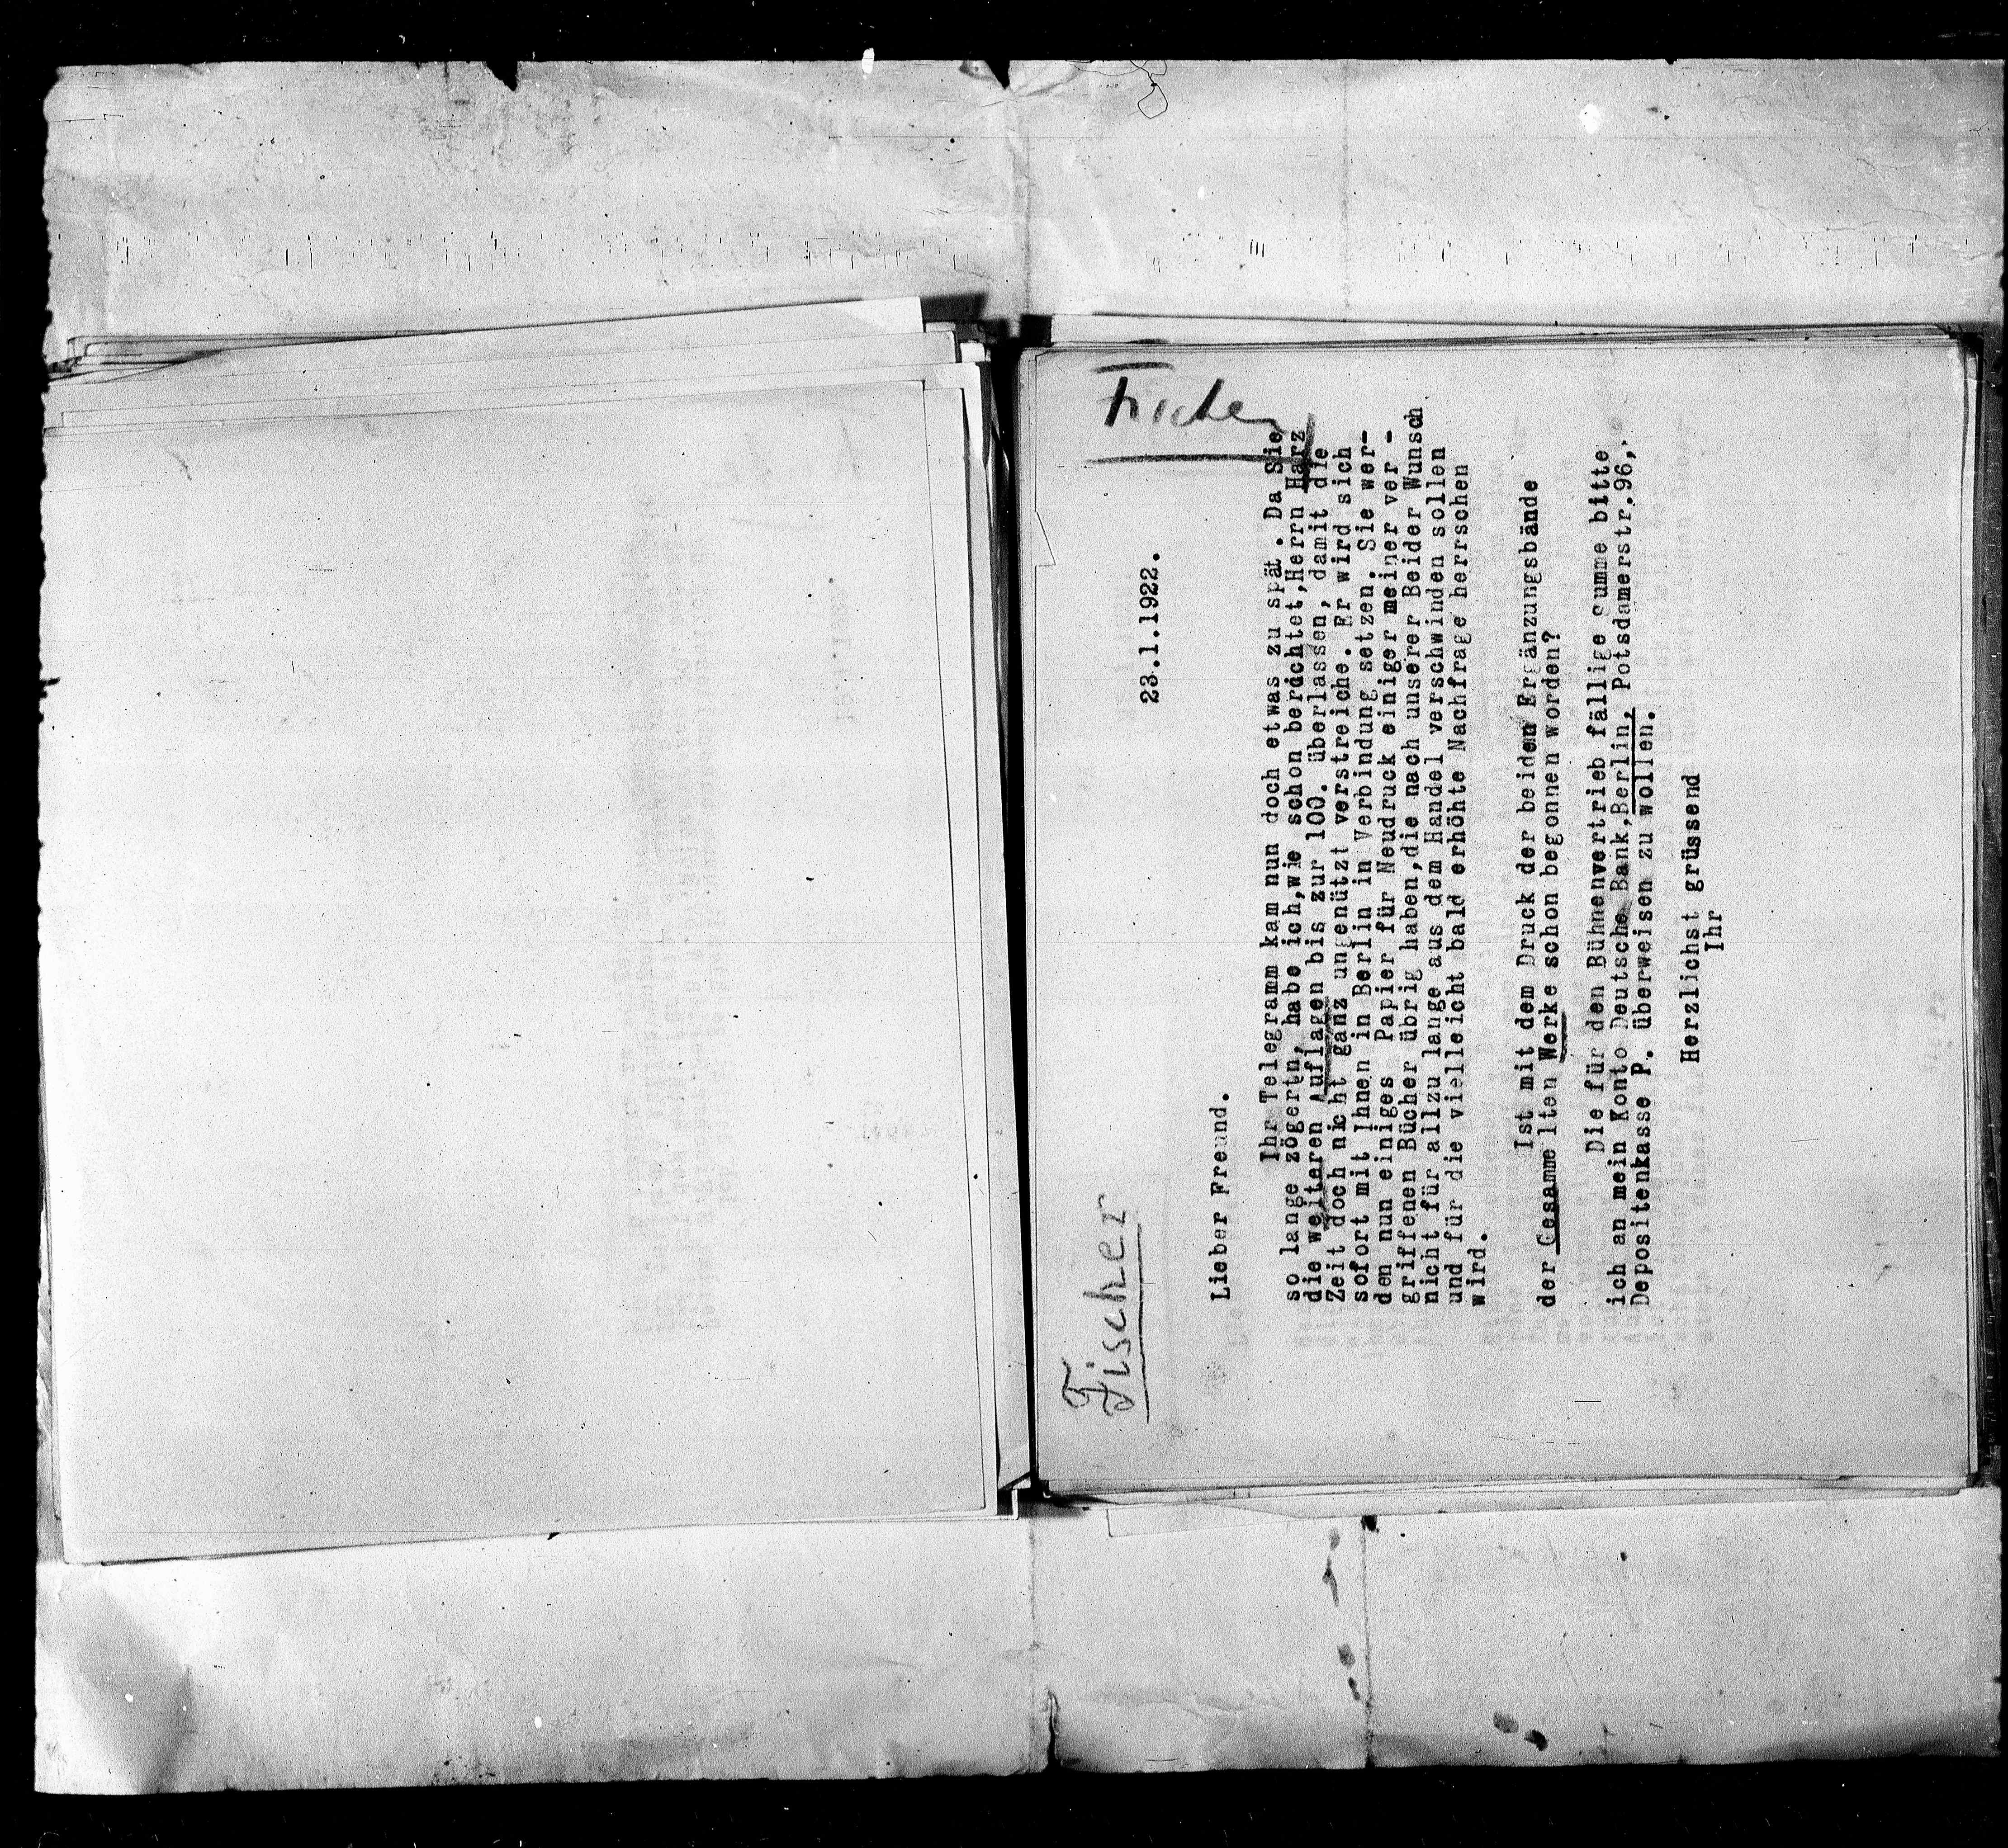 Fischer
Fischer
23.1.1922.
Lieber Freund.
Ihr Telegramm kam nun doch etwas zu spät. Da Sie
so lange zögertn, habe ich,wie schon berichtet,Herrn Harz
die weiteren Auflagen bis zur 100. überlassen, damit die
Zeit doch nicht ganz ungenützt verstreiche. Er wird sich
sofort mit Ihnen in Berlin in Verbindung setzen. Sie wer-
den nun einiges Papier für Neudruck einiger meiner ver-
griffenen Bücher übrig haben,die nach unserer Beider Wunsch
nicht für allzu lange aus dem Handel verschwinden sollen
und für die vielleicht bald erhöhte Nachfrage herrschen
wird.
Ist mit dem Druck der beiden Ergänzungsbände
der Gesammelten Werke schon begonnen worden?
Die für den Bühnenvertrieb fällige Summe bitte
ich an mein Konto Deutsche Bank,Berlin, Potsdamerstr.96,
Depositenkasse P. überweisen zu wollen.
Herzlichst grüssend
Ihr